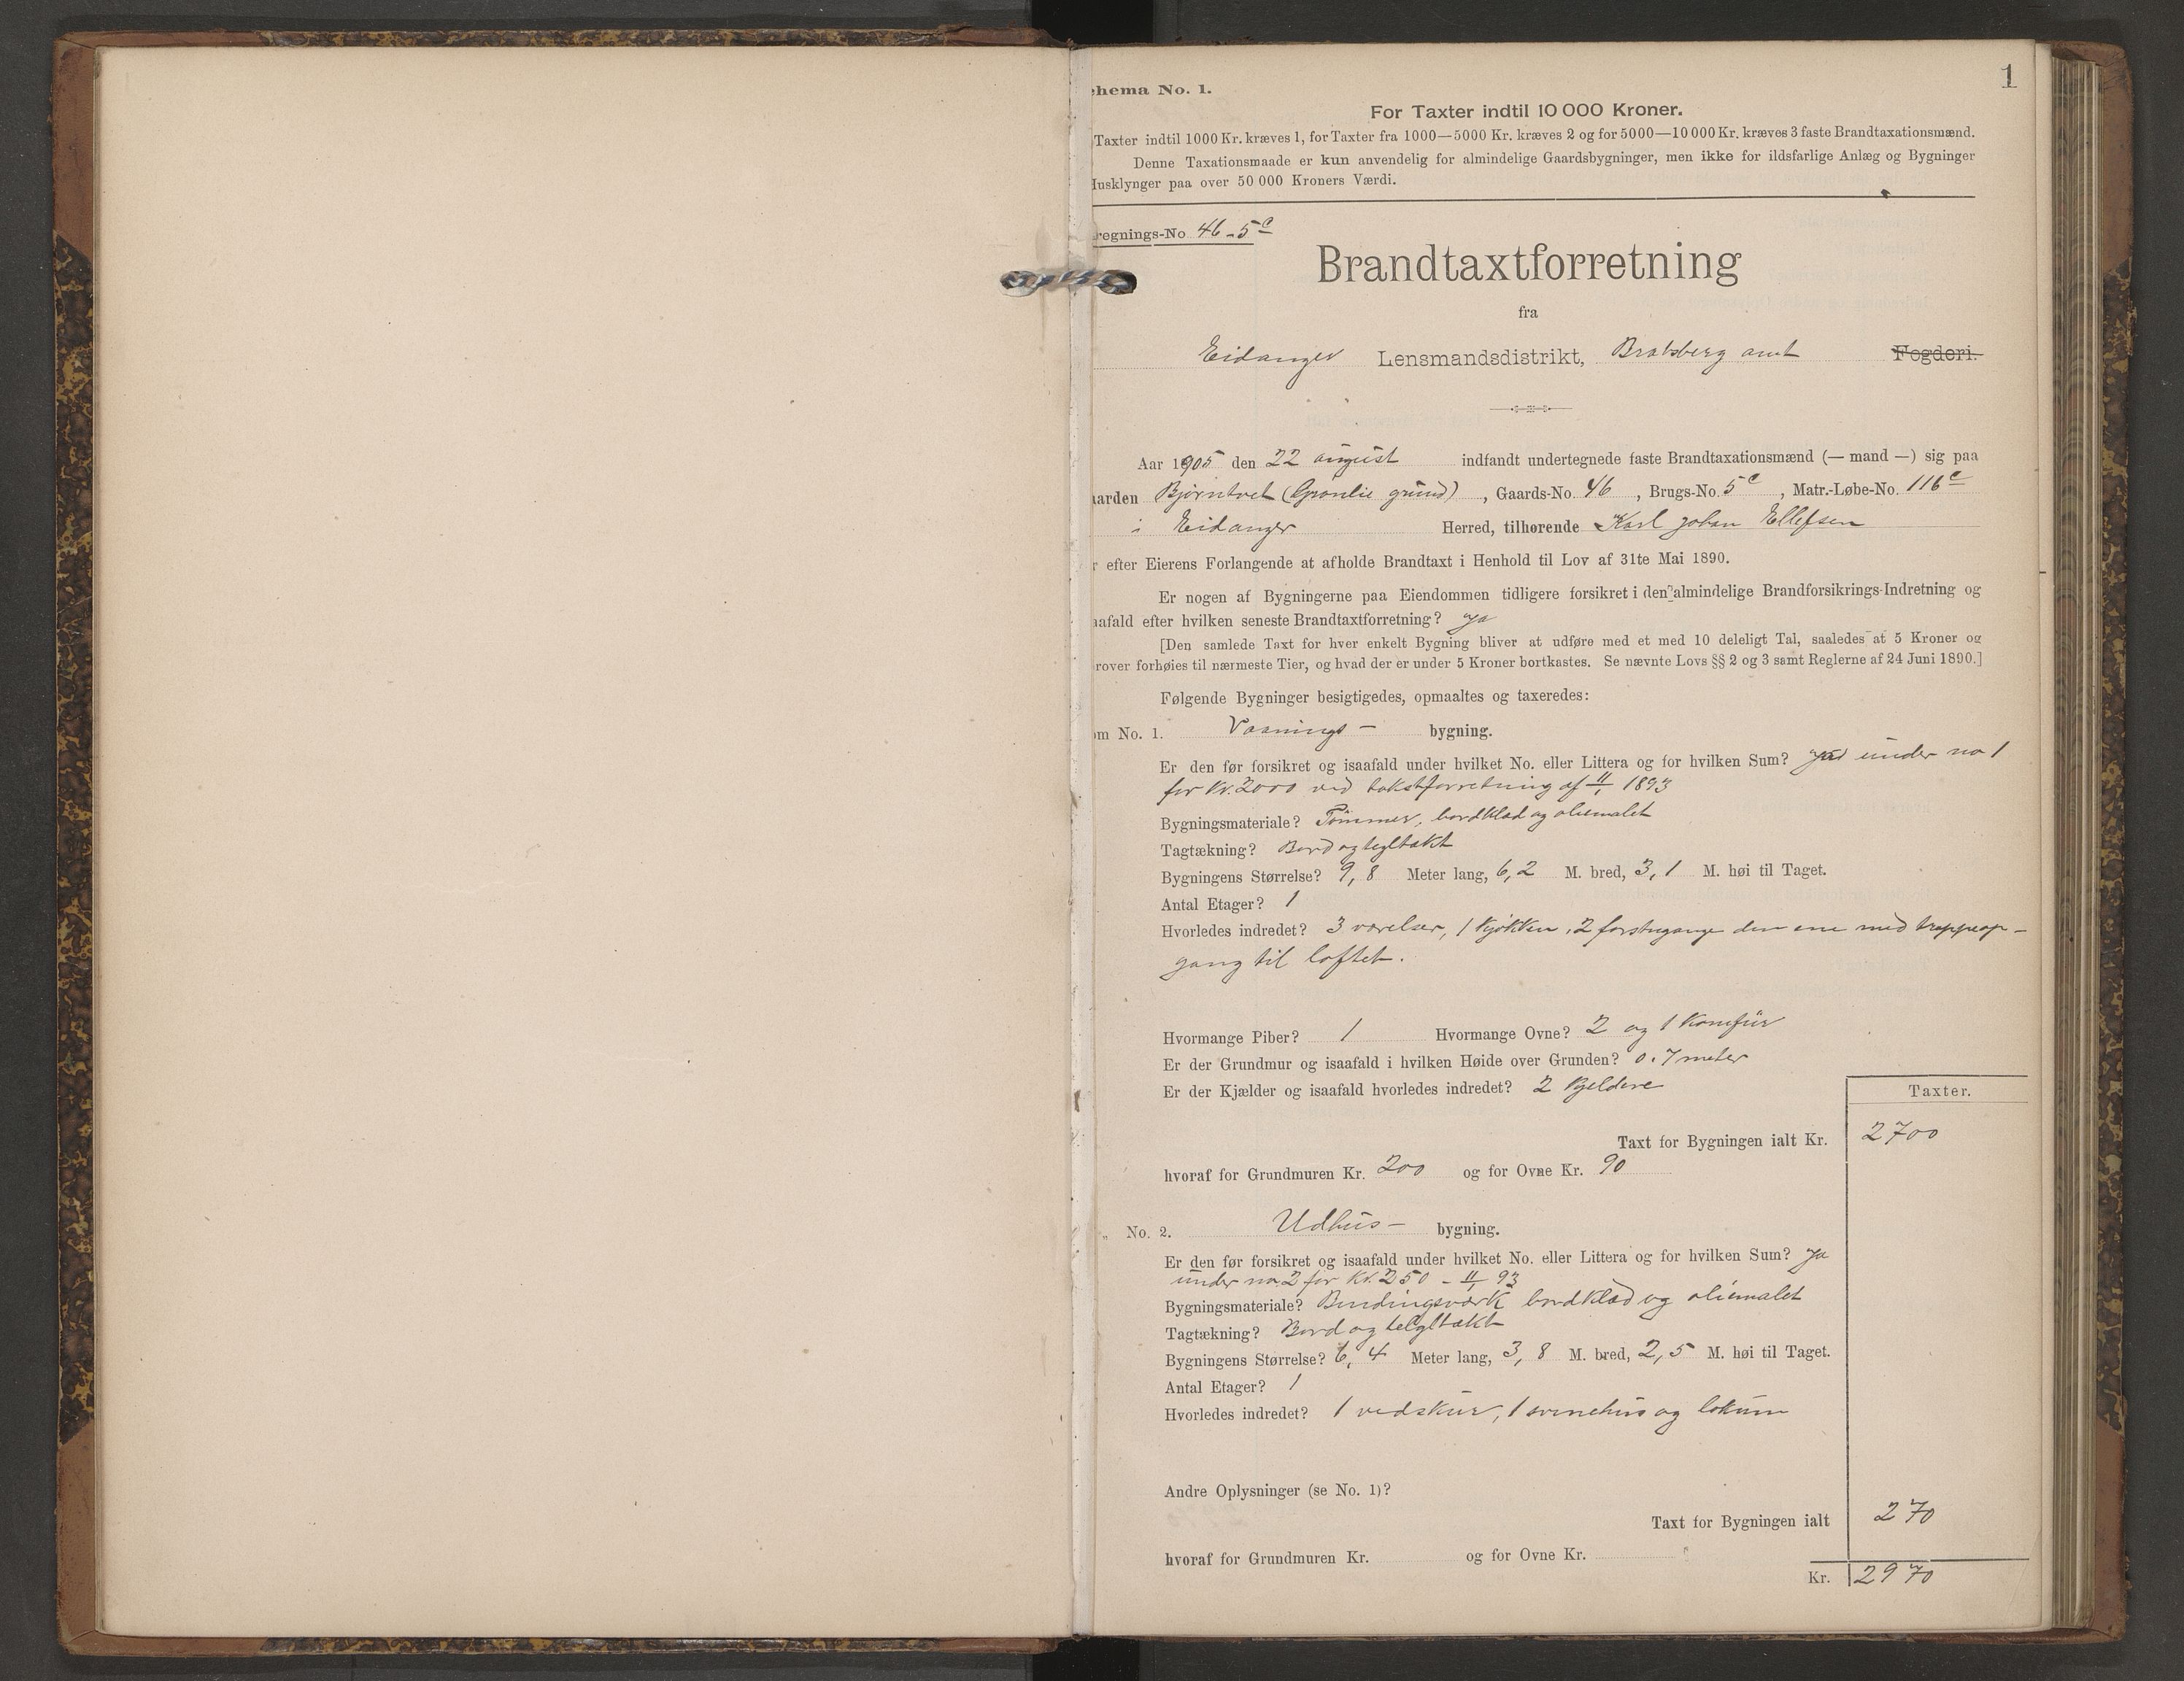 1
chema No. 1.
For Taxter indtil 10 000 Kroner.
Taxter indtil 1000 Kr. kræves 1, for Taxter fra 1000—5000 Kr. kræves 2 og for 5000—10 000 Kr. kræves 3 faste Brandtaxationsmænd.
Denne Taxationsmaade er kun anvendelig for almindelige Gaardsbygninger, men ikke for ildsfarlige Anlæg og Bygninger
Husklynger paa over 50 000 Kroners Værdi.
regnings-No 46-5c
Brandtaxtforretning
fra
Eidanger Lensmandsdistrikt, Bratsberg amt Fogderi.
Aar 1905 den 22 august indfandt undertegnede faste Brandtaxationsmænd (— mand —) sig paa
aarden Bjørntvet (Grønlie grund), Gaards-No. 46, Brugs-No. 5c, Matr.-Løbe-No. 116c
i Eidanger Herred, tilhørende Karl Johan Ellefsen
r efter Eierens Forlangende at afholde Brandtaxt i Henhold til Lov af 31te Mai 1890.
Er nogen af Bygningerne paa Eiendommen tidligere forsikret i den almindelige Brandforsikrings-Indretning og
aafald efter hvilken seneste Brandtaxtforretning? Ja
[Den samlede Taxt for hver enkelt Bygning bliver at udføre med et med 10 deleligt Tal, saaledes at 5 Kroner og
rover forhøies til nærmeste Tier, og hvad der er under 5 Kroner bortkastes. Se nævnte Lovs §§ 2 og 3 samt Reglerne af 24 Juni 1890.]
Følgende Bygninger besigtigedes, opmaaltes og taxeredes:
om No. 1. Vaanings- bygning.
Er den før forsikret og isaafald under hvilket No. eller Littera og for hvilken Sum? Ja under no 1
for Kr. 2000 ved takstforretning af 1893
Bygningsmateriale? Tømmer, bordklæd og oliemalet
Tagtækning? Bord og tegltækt
Bygningens Størrelse? 9,8 Meter lang, 6,2 M. bred, 3,1 M. høi til Taget.
Antal Etager? 1
Hvorledes indredet? 3 værelser, 1 kjøkken, 2 forstugange den ene med trappeop-
gang til loftet.
Hvormange Piber? 1 Hvormange Ovne? 2 og 1 komfür
Er der Grundmur og isaafald i hvilken Høide over Grunden? 0.7 meter
Er der Kjælder og isaafald hvorledes indredet? 2 Kjeldere
Taxter.
Taxt for Bygningen ialt Kr. 2700
hvoraf for Grundmuren Kr. 200 og for Ovne Kr. 90
„ No. 2. Udhus- bygning.
Er den før forsikret og isaafald under hvilket No. eller Littera og for hvilken Sum? Ja
under no. 2 for Kr. 250 - 93
Bygningsmateriale? Bindingsværk bordklæd og oliemalet
Tagtækning? Bord og tegltækt
Bygningens Størrelse? 6,4 Meter lang, 3,8 M. bred, 2,5 M. høi til Taget.
Antal Etager? 1
Hvorledes indredet? 1 vedskur, 1 svinehus og lokum
Andre Oplysninger (se No. 1)?
Taxt for Bygningen ialt 270
hvoraf for Grundmuren Kr. og for Ovne Kr.
Kr. 2970